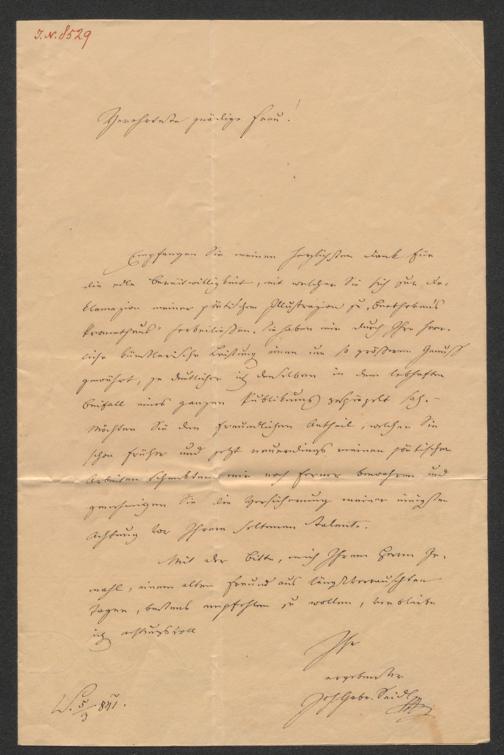 I.N. 8529
Verehrteste gnädige Frau!
Empfangen Sie meinen herzlichsten Dank für
die edle Bereitwilligkeit, mit welcher Sie sich zur De-
klamazion meiner poetischen Illustrazion zu „Beethovens
Prometheus" herbeiließen. Sie haben mir durch Ihre herr-
liche künstlerische Leistung einen um so größeren Genuß
gewährt, je deutlicher ich denselben in dem lebhaften
Beifall eines ganzen Publikums gespiegelt sah. –
Möchten Sie den freundlichen Antheil, welchen Sie
schon früher und jetzt neuerdings meinen poetischen
Arbeiten schenkten, mir noch ferner bewahren und
genehmigen Sie die Versicherung meiner innigsten
Achtung vor Ihrem seltenen Talente.
Mit der Bitte, mich Ihrem Herrn Ge-
mahl, einem alten Freund aus längstverrauschten
Tagen, bestens empfehlen zu wollen, verbleibe
ich achtungsvoll
Ihr
ergebenster
Joh. Gabr. Seidl
W. 5/3 841.